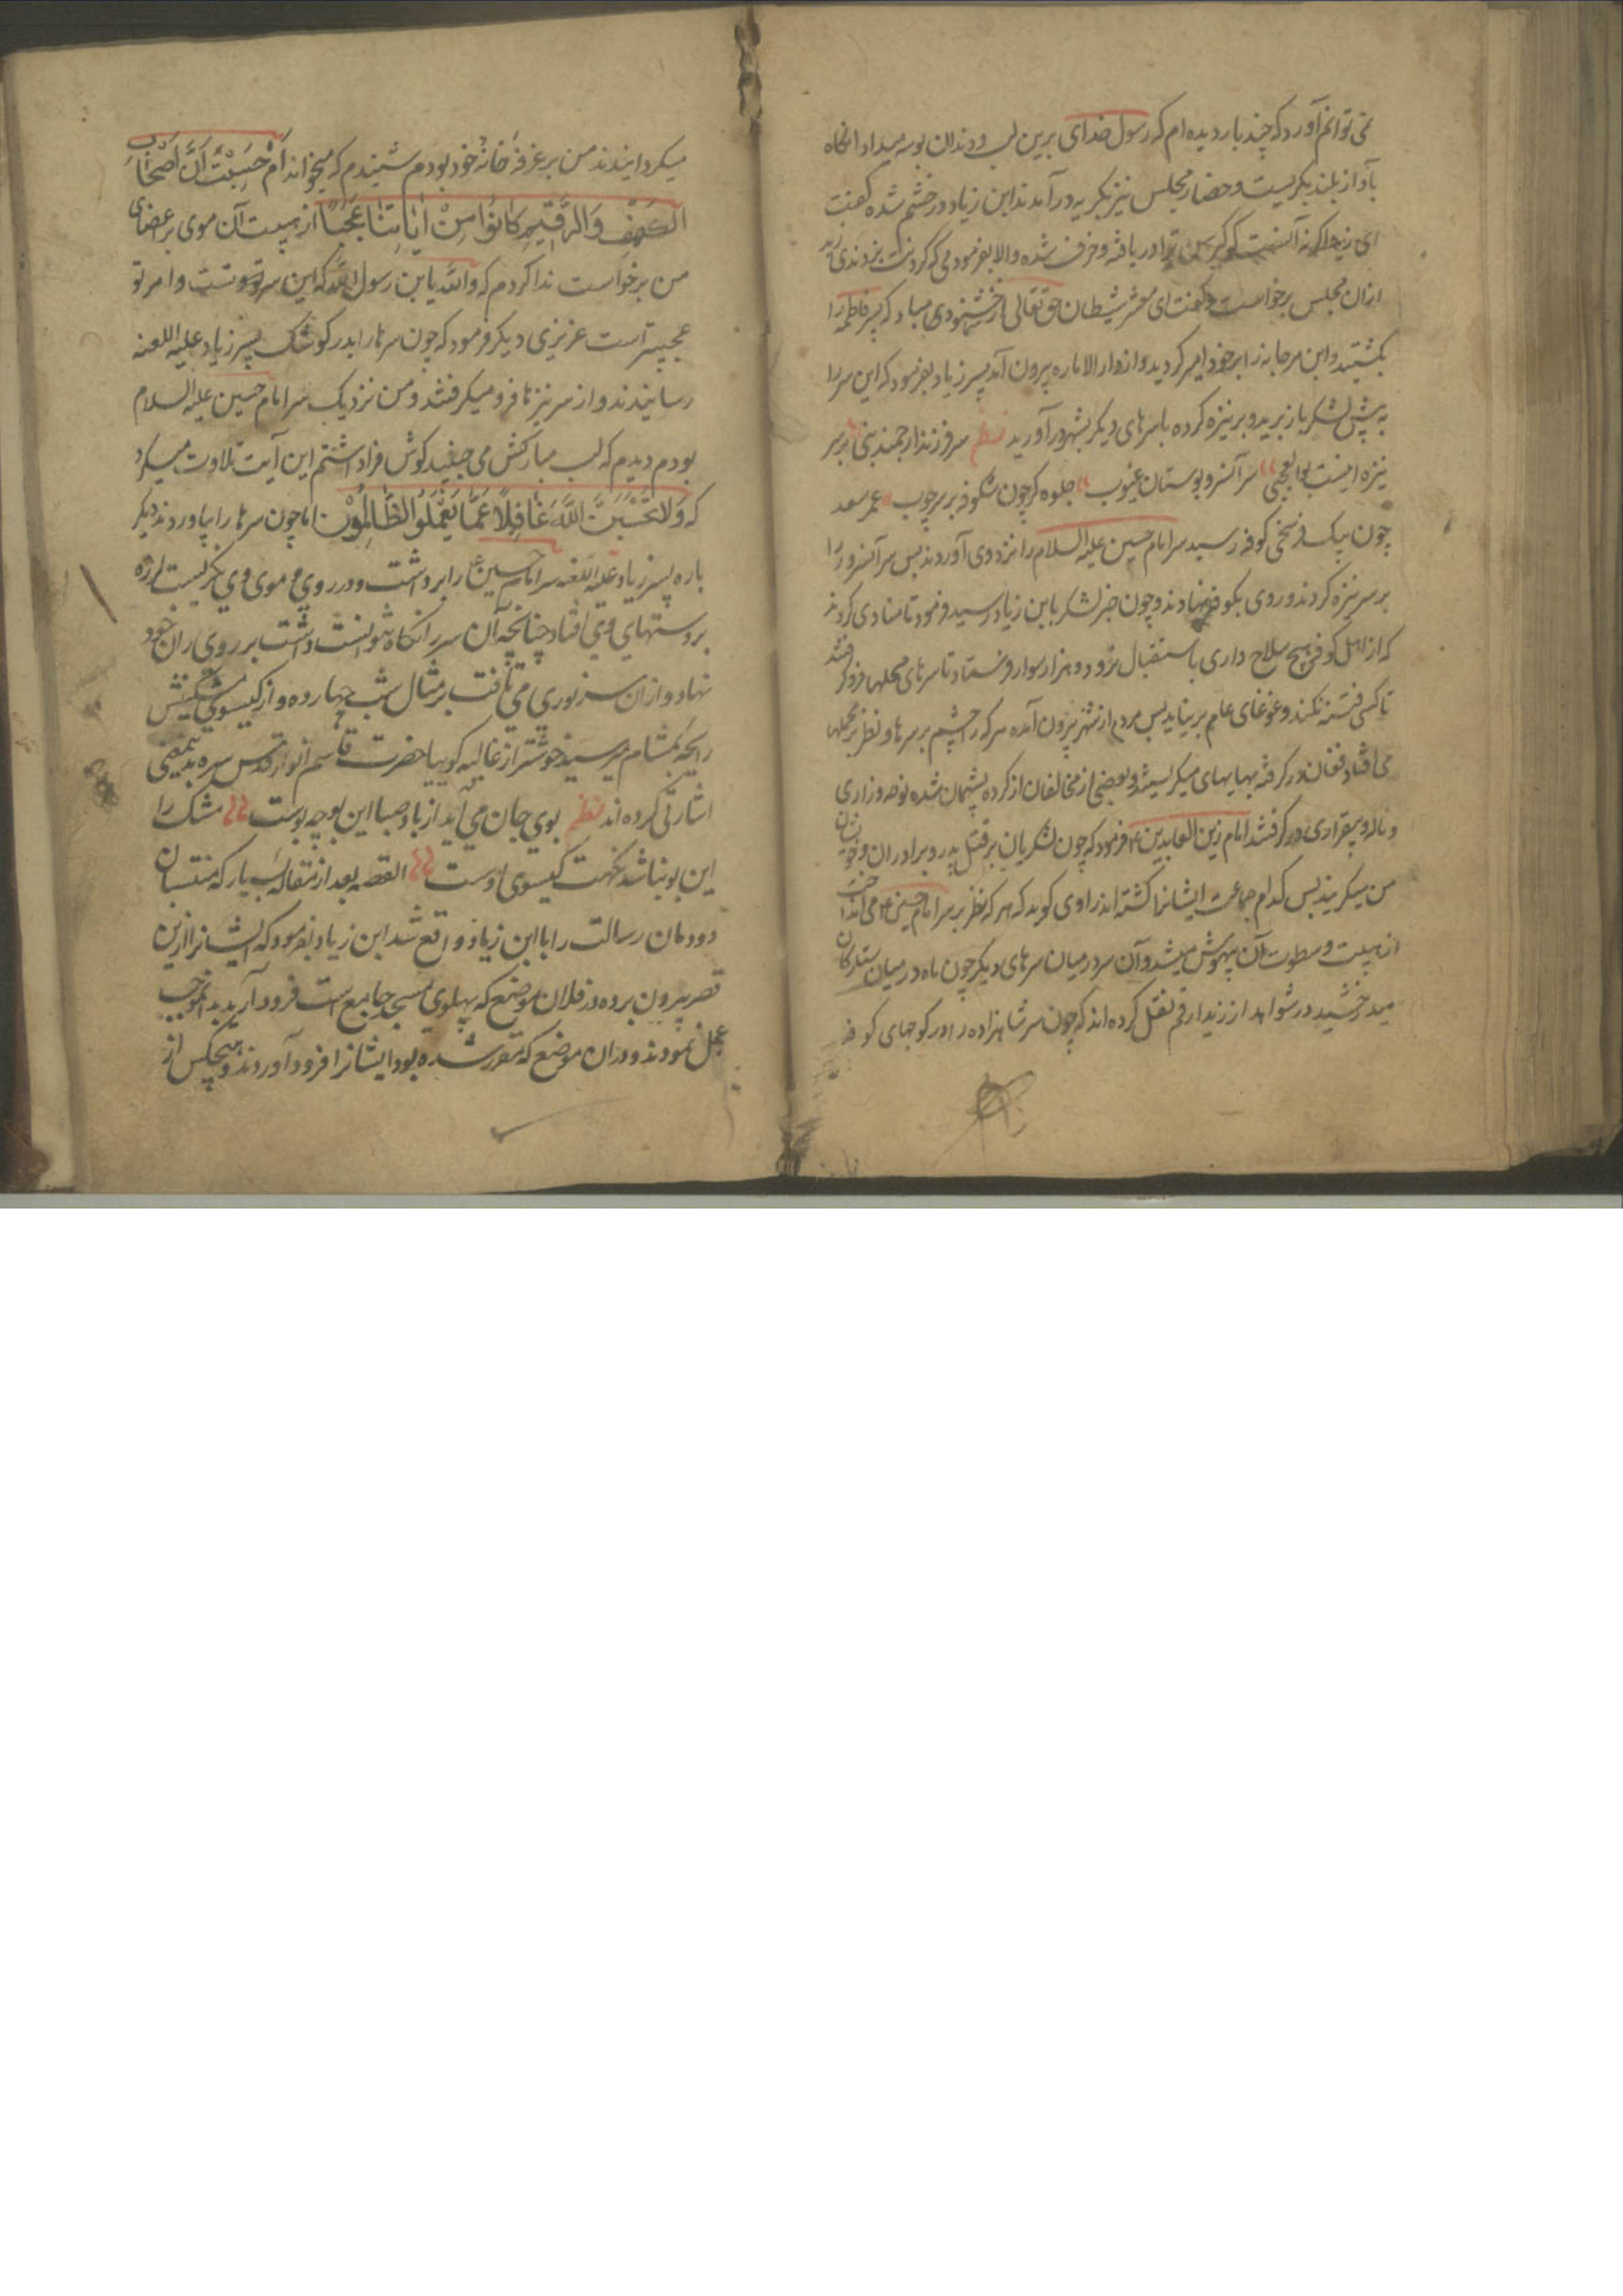 نمی توانم آورد که چند بار دیده ام که رسول خدای برین لب و دندان بوسه میداد انکاه
بآواز بلند بکریست و حضار مجلس نیز بکریه درآمدند ابن زیاد در خشم شده کفت
ای زید اکر نه آنست که کبر سن ترا دریافته و خرف شده والا بفرمودمی که کردنت بزدندی زید
ازان مجلس برخواست و کفت ای معشر شیطان حق تعالی از شما خشنود مباد که پسر فاطمه را
بکشتید و ابن مرجانه را بر خود امیر کردید و از دار الاماره بیرون آمد پسر زیاد بفرمود که این سر را
به پیش لشکر باز برید و بر نیزه کرده با سرهای دیکر بشهر درآورید نظم سر فرزند ارجمند نبی بر سر
نیزه اینست بوالعجبی سر آنسرو بوستان غیوب جلوه کر چون شکوفه بر سر چوب عمر سعد
چون بیک فرسخی کوفه رسید سر امام حسین علیه السلام را نزد وی آوردند پس سر آنسرور را
بر سر نیزه کردند و روی بکوفه نهادند و چون خبر لشکر بابن زیاد رسید فرمود تا منادی کردند
که از اهل کوفه هیچ سلاح داری باستقبال نرود و دو هزار سوار فرستاد تا سرهای محلها فرو کرفتند
تا کسی فتنه نکند و غوغای عام برنیاید پس مردم از شهر بیرون آمده هر که را چشم بر سرها و نظر بر محملها
می افتاد فغان در کرفته بهایهای میکریستند و بعضی از مخالفان از کرده پشیمان شده نوحه و زاری
و ناله و بیقراری در کرفتند امام زین العابدین ع فرمود که چون لشکریان بر قتل پدر و برادران و خویشان
من میکریند پس کدام جماعت ایشانرا کشته اند راوی کوید که هر که نظر بر سر امام حسین ع می انداخت
از هیبت و سطوت آن بیهوش میشد و آن سر در میان سرهای دیکر چون ماه در میان ستارکان
میدرخشید در شواهد از زید ارقم نقل کرده اند که چون سر شاهزاده را در کوچهای کوفه
میکردانیدند من بر غرفه خانه خود بودم شنیدم که میخواند اَم حَسِبْتَ اَنَّ اَصْحَابَ
الْکَهْفِ وَالرَّقِیمِ کَانُوا مِنْ اٰیَاتِنَا عَجَبًا از هیبت آن موی بر اعضای
من برخواست ندا کردم که والله یا ابن رسول الله که این سر تو است و امر تو
عجیبتر است عزیزی دیکر فرمود که چون سرها را بدر کوشک پسر زیاد علیه اللعنه
رسانیدند و از سر نیزها فرو میکرفتند و من نزدیک سر امام حسین علیه السلام
بودم دیدم که لب مبارکش می جنبید کوش فرا داشتم این آیت تلاوت میکرد
که وَلَا تَحْسَبَنَّ اللّٰهَ غَافِلًا عَمَّا یَعْمَلُ الظَّالِمُوْنَ اما چون سرها را بیاوردند دیکر
باره پسر زیاد علیه اللعنه سر امام حسین ع را برداشت و در روی و موی وی نکریست لرزه
بر دستهای وی افتاد چنانچه آن سر را نکاه نتوانست داشت بر روی ران خود
نهاد و ازان سر نوری می تافت بر مثال شب چهارده و از کیسوی مشکینش
رایحه بمشام میرسید خوشتر از غالیه کوییا حضرت قاسم انوار قدس سره بدینمعنی
اشارتی کرده اند نظم بوی جان می آید از باد صبا این بو چه بوست مشک را
این بو نباشد نکهت کیسوی اوست القصه بعد از مقاله بسیار که منتسبان
دودمان رسالت را با ابن زیاد واقع شد ابن زیاد بفرمود که ایشانرا ازین
قصر بیرون برده در فلان موضع که پهلوی مسجد جامع است فرود آرید بدانموجب
عمل نمودند و در ان موضع که مقرر شده بود ایشانرا فرود آوردند و هیچکس از